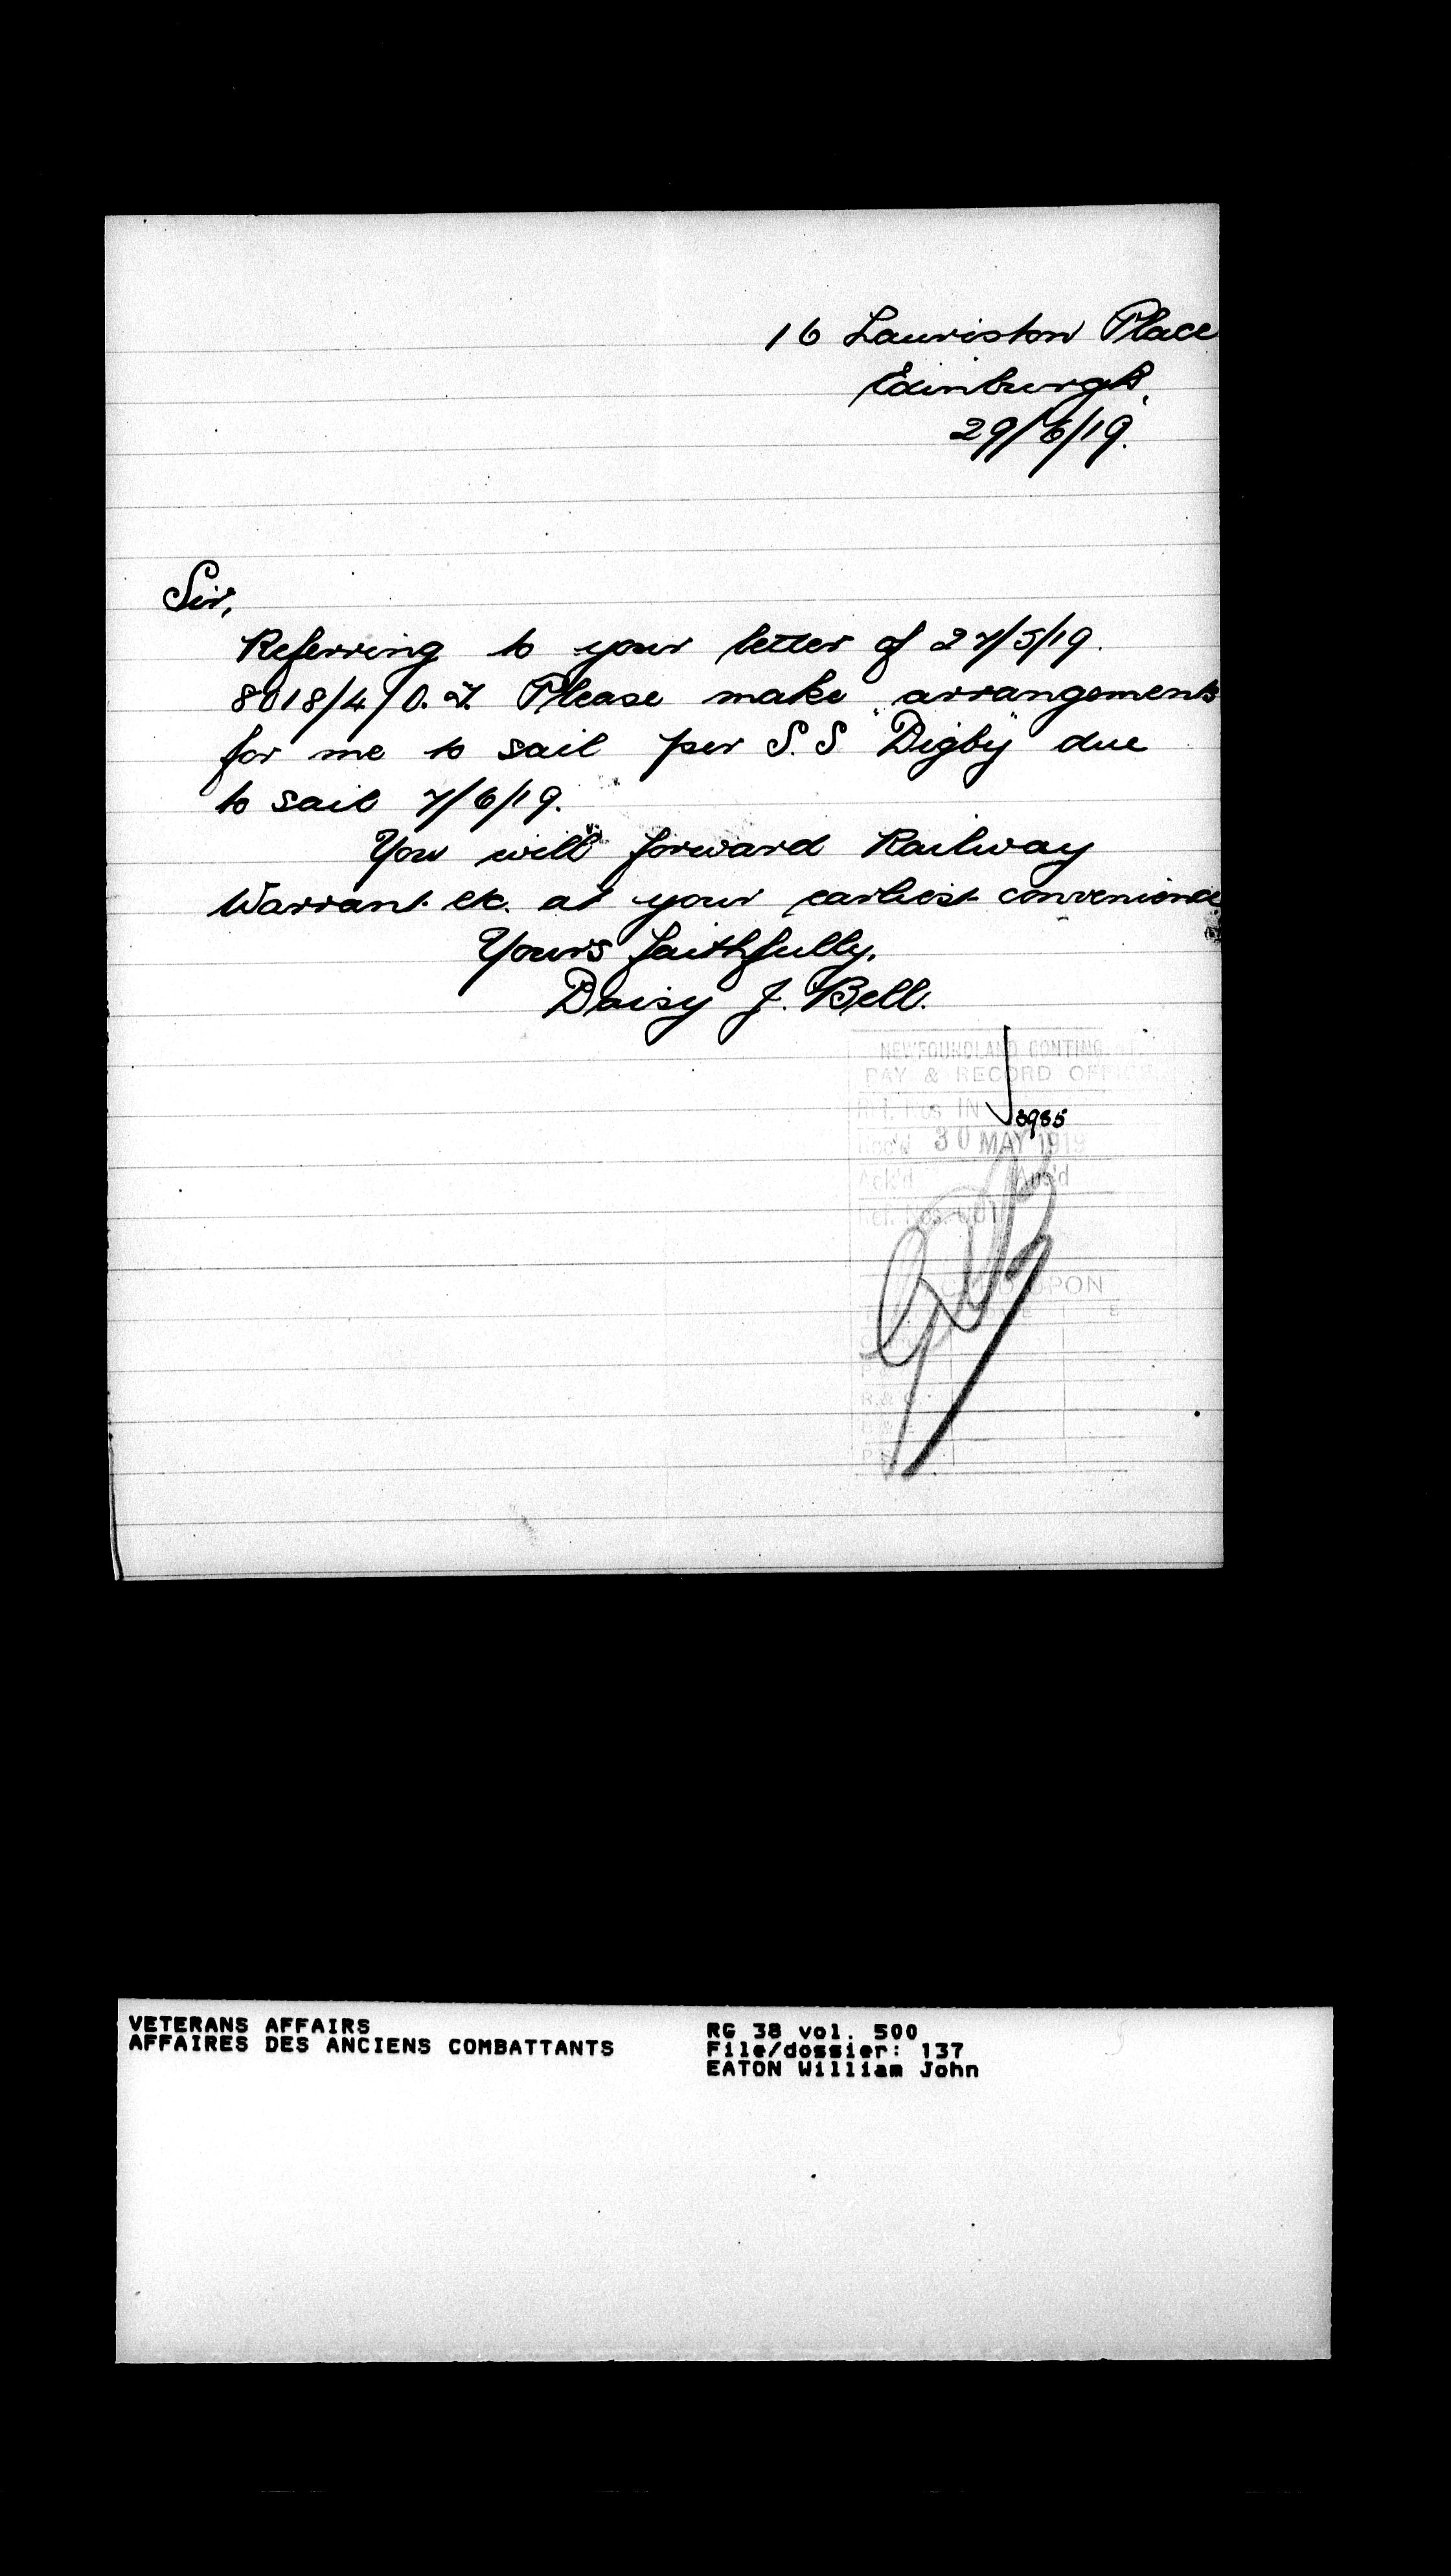 16 Lauriston Place
Edinburgh,
29/6/19.
Sir,
Referring to your letter of 27/5/19.
8018/4/O.2. Please make arrangements
for me to sail per S.S "Digby" due
to sail 7/6/19.
You will forward Railway
Warrant etc. at your earliest convenience
Yours faithfully,
Daisy J. Bell.
NEWFOUNDLAND CONTINGENT
PAY & RECORD OFFICE
Ref. Nos IN 3985
Rec'd 30 MAY 1919
Ack'd Ans'd
Ref. Nos. OUT
UPON
R. &
VETERANS AFFAIRS
AFFAIRES DES ANCIENS COMBATTANTS
RG 38 vol. 500
File/dossier: 137
EATON William John